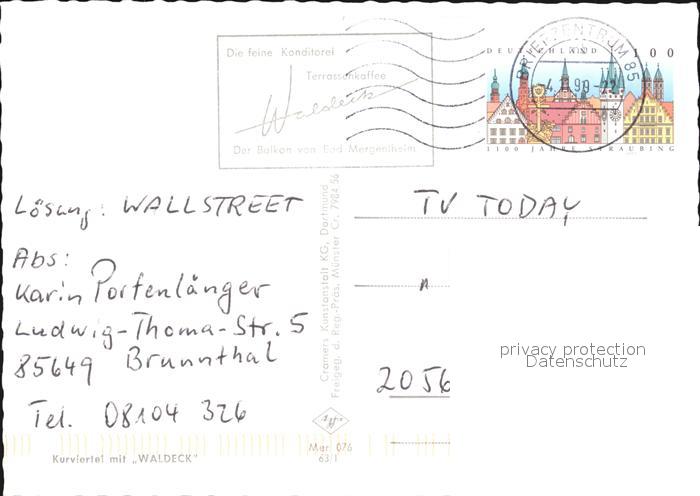 Die feine Konditorei
Terrassenkaffee
Waldeck
Der Balkon von Bad Mergentheim
DEUTSCHLAND 100
BRIEFZENTRUM 85
1100 JAHRE STRAUBING
Lösung: WALLSTREET
Abs:
Karin Portenlänger
Ludwig-Thoma-Str. 5
85649 Brunnthal
Tel. 08104 326
Kurviertel mit „WALDECK"
Cramers Kunstanstalt KG, Dortmund
Freigeg. d. Reg.-Präs. Münster Cr. 7984/56
Mer 076
63/1
TV TODAY
n
2056
privacy protection
Datenschutz